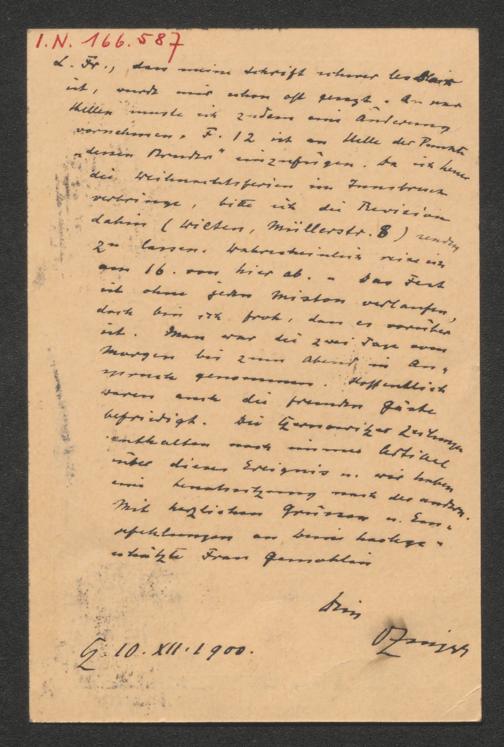 I.N. 166.587
L. Fr., dass meine Schrift schwer lesbar
ist, wurde mir schon oft gesagt. An
Stellen musste ich zudem eine Änderung
vornehmen. F. 12 ist an Stelle der Punkte
"dessen Bruder" einzufügen. Da ich heuer
die Weihnachtsferien in Innsbruck
verbringe, bitte ich die Revision
dahin (Wilten, Müllerstr. 8) senden
zu lassen. Wahrscheinlich reise ich
am 16. von hier ab. – Das Fest
ist ohne jeden Misston verlaufen,
doch bin ich froh, dass es vorüber
ist. Man war die zwei Tage vom
Morgen bis zum Abend in An-
spruch genommen. Hoffentlich
waren auch die fremden Gäste
befriedigt. Die Czernowitzer Zeitungen
enthalten noch immer Artikel
über dieses Ereignis u. wir haben
eine Senatssitzung nach der andern.
Mit herzlichen Grüssen u. Em-
pfehlungen an Deine hochge-
schätzte Frau Gemahlin
Dein
Cz 10. XII. 1900.